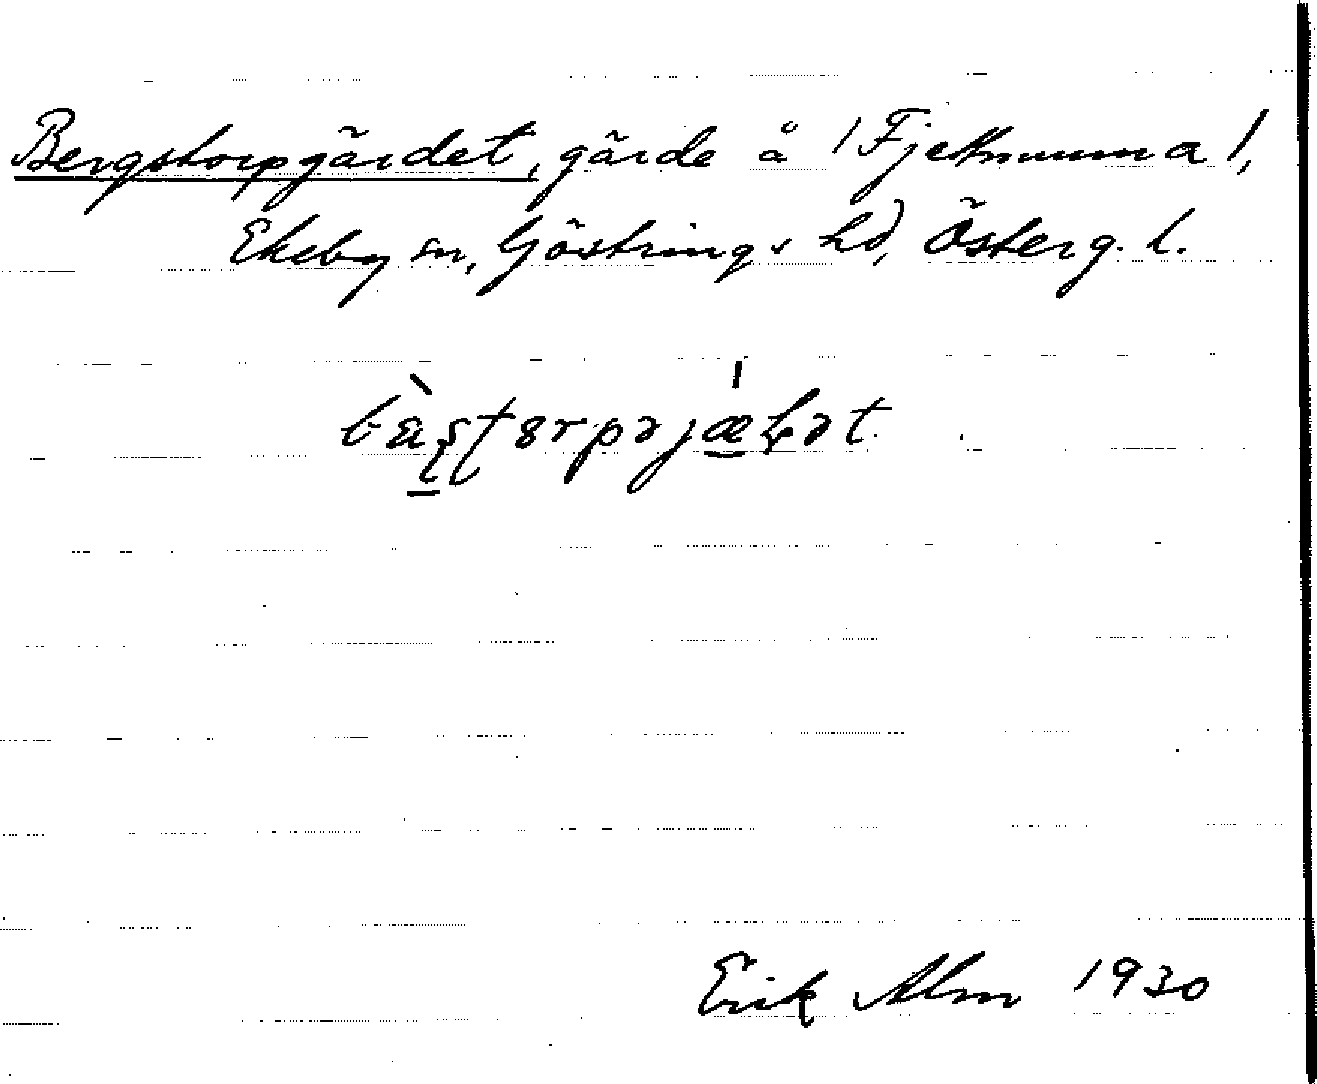 Bergstorpgärdet, gärde å /Fjettmunna/,
Ekeby sn, Göstrings hd, Österg. l.
Erik Alm 1930